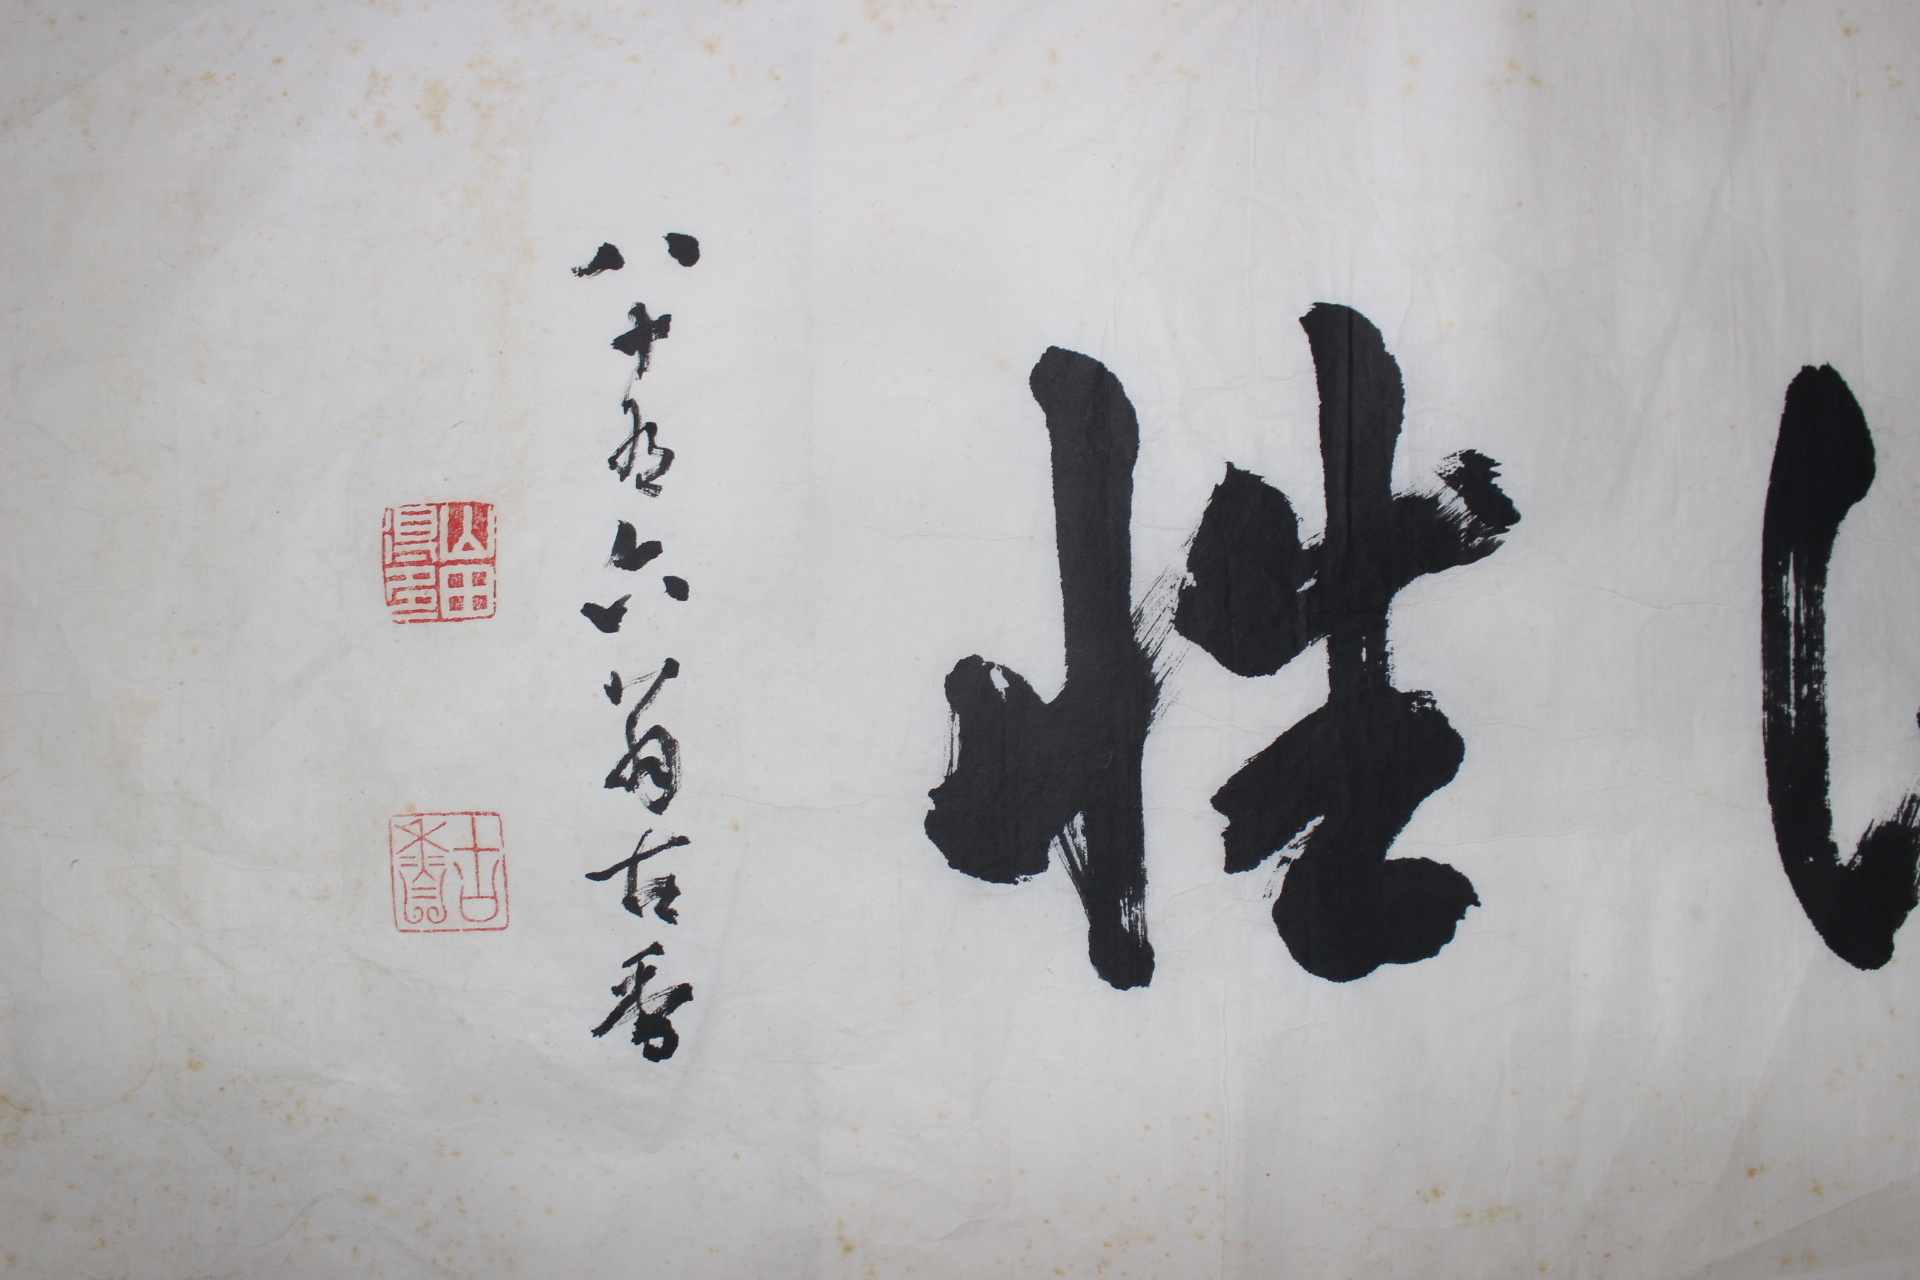 性
八十有六翁古香
山田
得多
古香